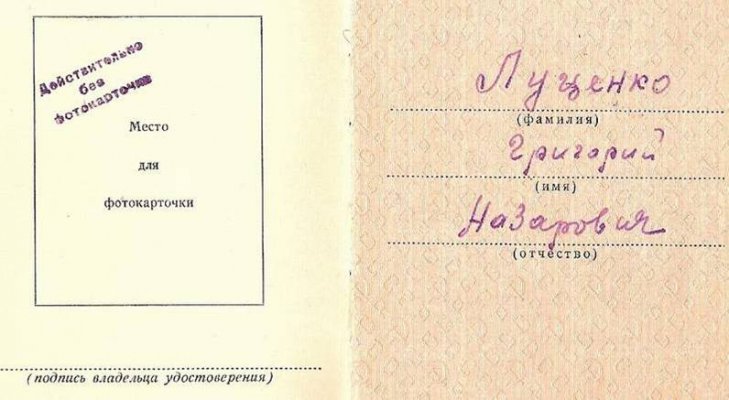 Действительно
без
фотокарточки
Место
для
фотокарточки
(подпись владельца удостоверения)
Лущенко
(фамилия)
Григорий
(имя)
Назарович
(отчество)